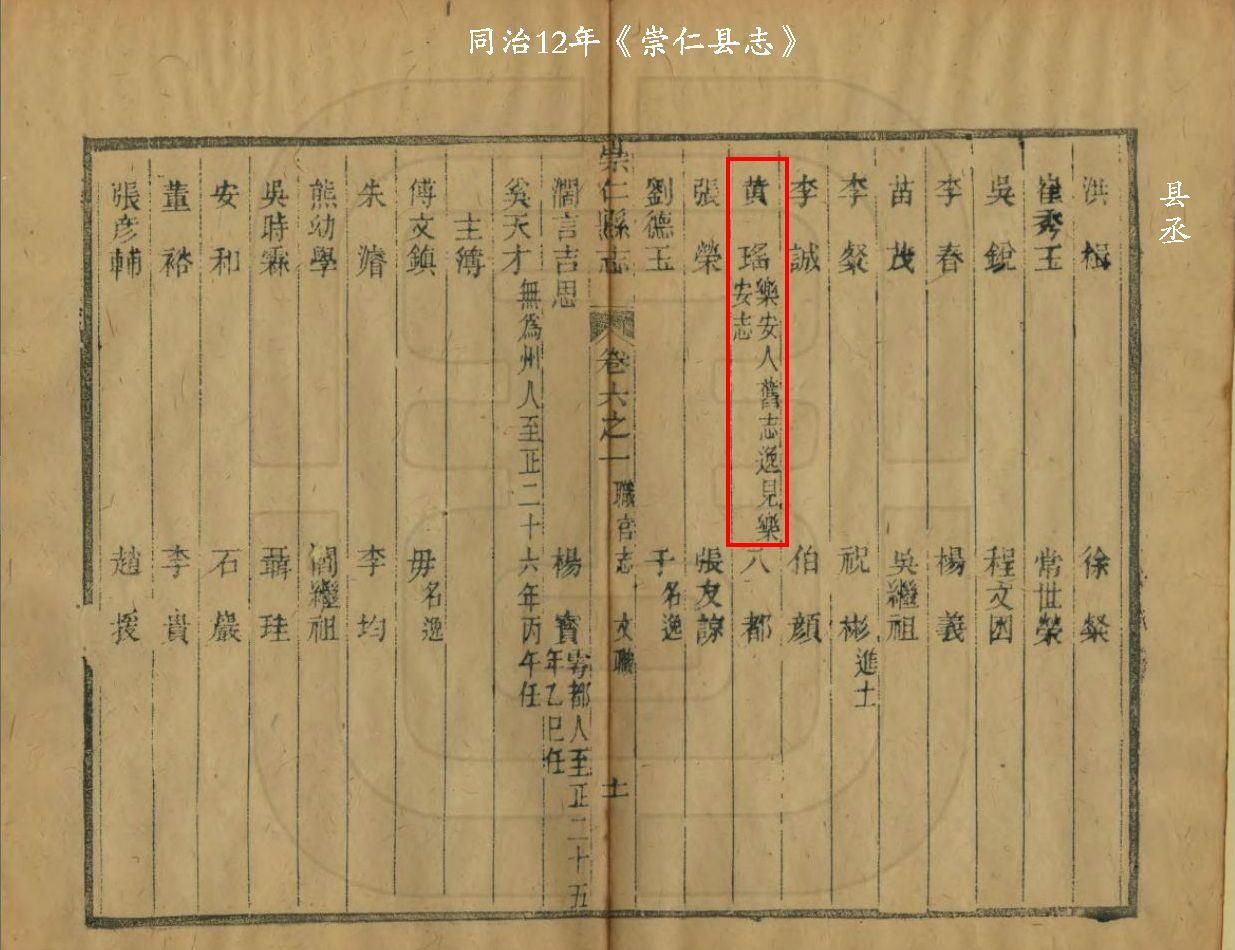 同治12年《崇仁县志》
县丞
洪楫 徐粲
崔秀玉 常世榮
吳銳 程文囦
李春 楊義
苗茂 吳繼祖
李粲 祝彬進士
李誠 伯顏
黄瑤樂安人舊志逸見樂安志 八都
張榮 張友諒
劉德玉 于名逸
崇仁縣志 卷六之一 職官志 文職 十一
濶言吉思 楊寳雩都人至正二十五年乙巳任
奚天才無爲州人至正二十六年丙午任
主簿
傅文鎮 毋名逸
朱濳 李均
熊幼學 濶繼祖
吳時霖 聶珪
安和 石巖
董裕 李貴
張彦輔 趙援